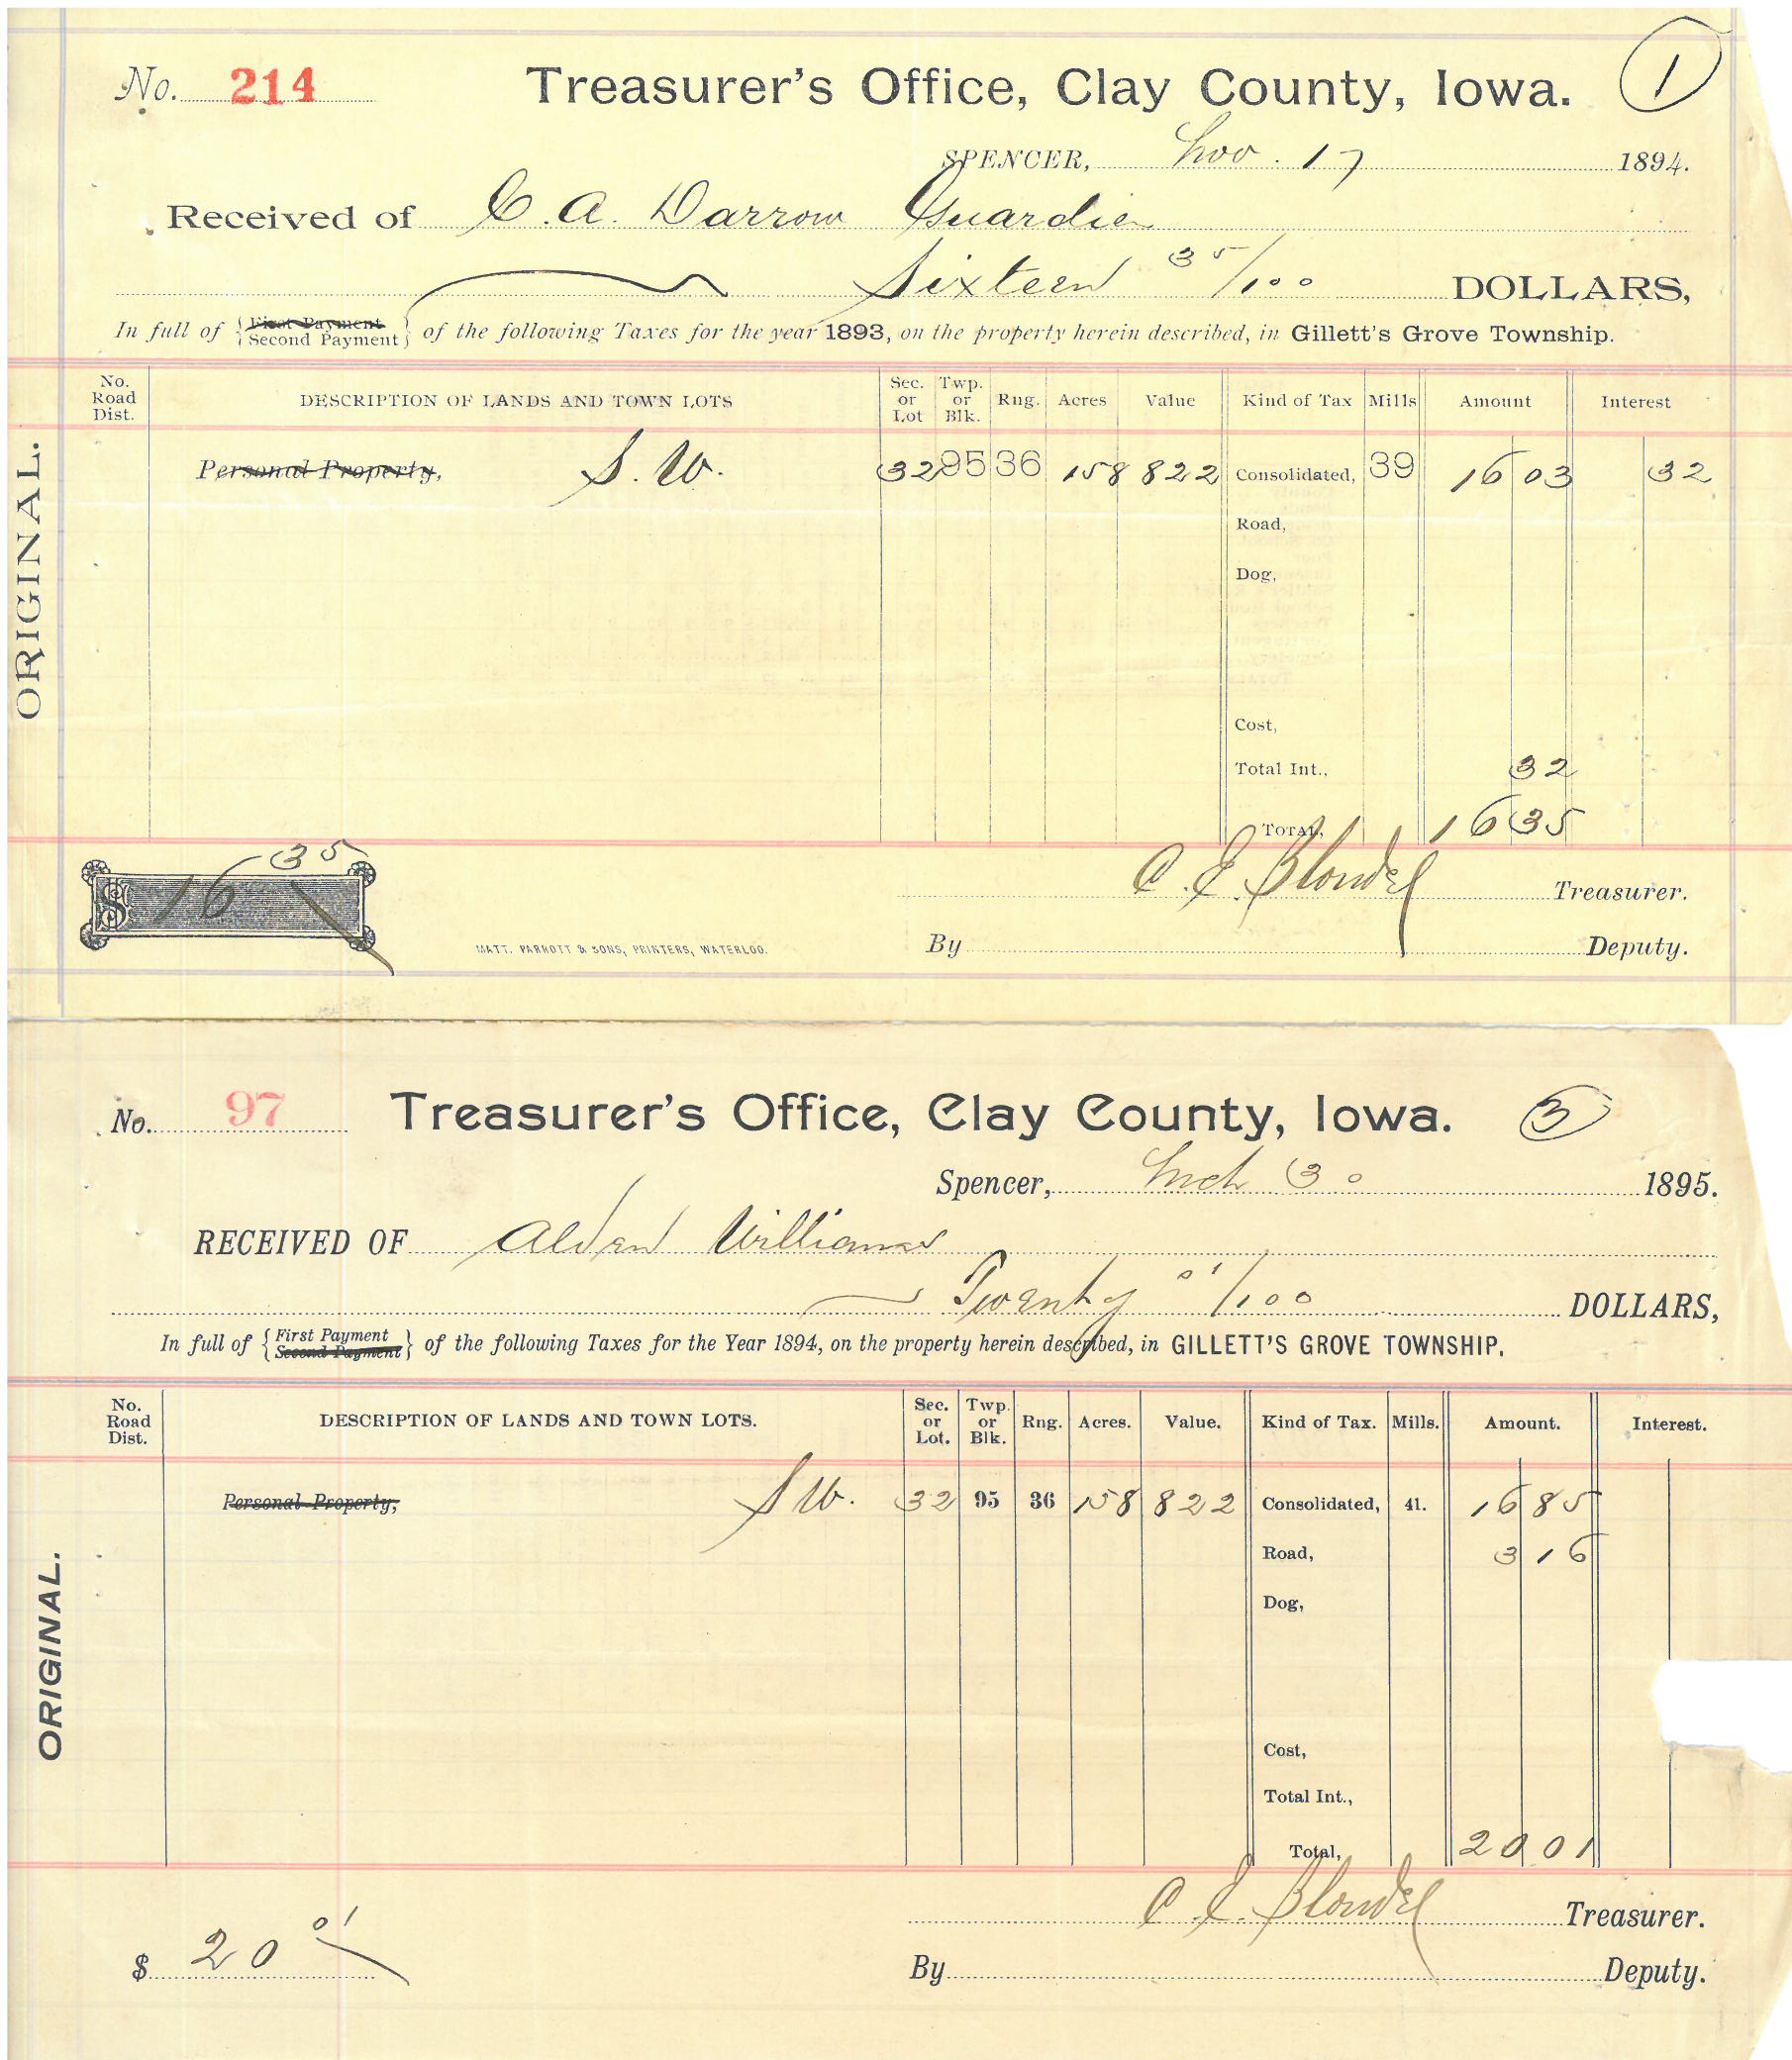 No. 214 Treasurer's Office, Clay County, Iowa. 1
SPENCER, Nov. 17 1894.
Received of C. A. Darrow Guardian
Sixteen 35/100 DOLLARS,
In full of { First Payment Second Payment } of the following Taxes for the year 1893, on the property herein described, in Gillett's Grove Township.
No. Road Dist. DESCRIPTION OF LANDS AND TOWN LOTS Sec. or Lot Twp. or Blk. Rng. Acres Value Kind of Tax Mills Amount Interest
Personal Property, S. W. 32 95 36 158 822 Consolidated, 39 16 03 32
Road,
Dog,
ORIGINAL.
Cost,
Total Int., 32
TOTAL, 16 35
$ 16 35
C. E. Blondel Treasurer.
MATT. PARROTT & SONS, PRINTERS, WATERLOO.
By Deputy.
No. 97 Treasurer's Office, Clay County, Iowa. 3
Spencer, Mch 30 1895.
RECEIVED OF Alden Williams
Twenty 01/100 DOLLARS,
In full of { First Payment Second Payment } of the following Taxes for the Year 1894, on the property herein described, in GILLETT'S GROVE TOWNSHIP.
No. Road Dist. DESCRIPTION OF LANDS AND TOWN LOTS. Sec. or Lot. Twp. or Blk. Rng. Acres. Value. Kind of Tax. Mills. Amount. Interest.
Personal Property, S W. 32 95 36 158 822 Consolidated, 41. 16 85
Road, 3 16
Dog,
ORIGINAL.
Cost,
Total Int.,
Total, 20 01
C. E. Blondel Treasurer.
$ 20 01
By Deputy.